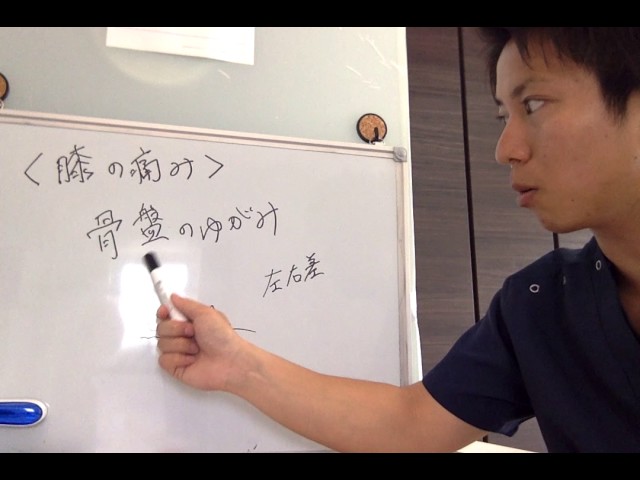 ＜膝の痛み＞
骨盤のゆがみ
左右差